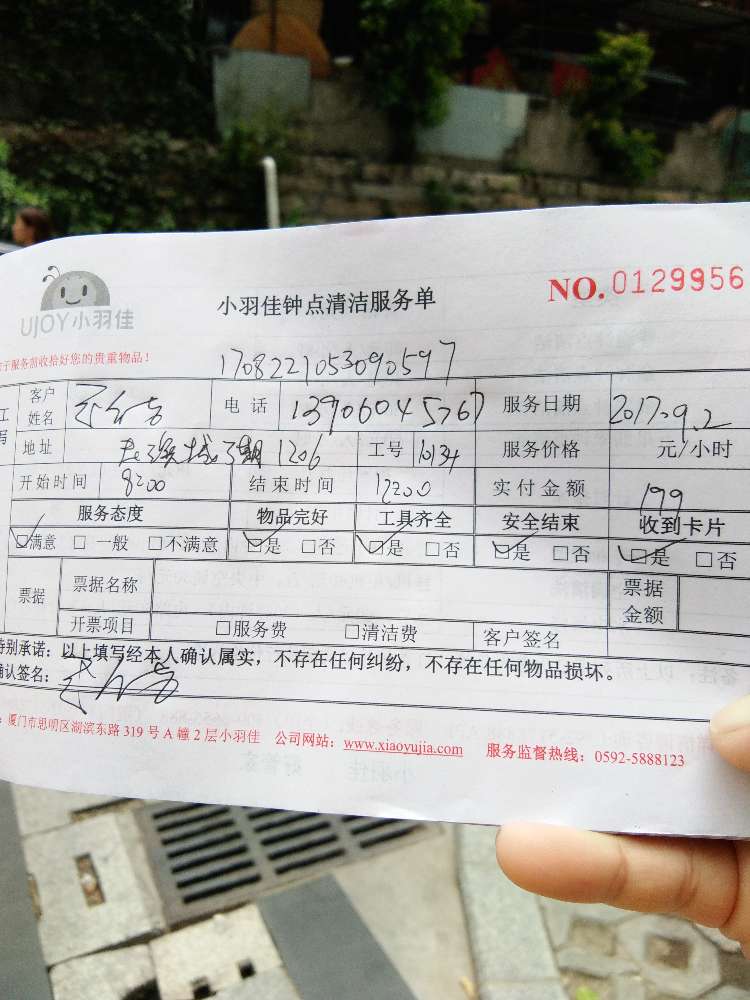 UJOY小羽佳
小羽佳钟点清洁服务单
NO.0129956
于服务前收拾好您的贵重物品！
1708221053090597
客户姓名 电话 13906045767 服务日期 2017.9.2
地址 3期 1206 工号 10134 服务价格 元/小时
开始时间 8:00 结束时间 12:00 实付金额 199
服务态度 物品完好 工具齐全 安全结束 收到卡片
☑满意 □一般 □不满意 ☑是 □否 ☑是 □否 ☑是 □否 ☑是 □否
票据 票据名称 票据金额
开票项目 □服务费 □清洁费 客户签名
特别承诺：以上填写经本人确认属实，不存在任何纠纷，不存在任何物品损坏。
确认签名：
：厦门市思明区湖滨东路 319 号 A 幢 2 层小羽佳 公司网站：www.xiaoyujia.com 服务监督热线：0592-5888123